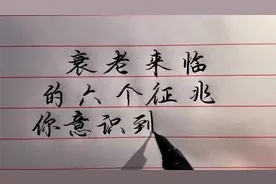 衰老来临
的六个征兆
你意识到